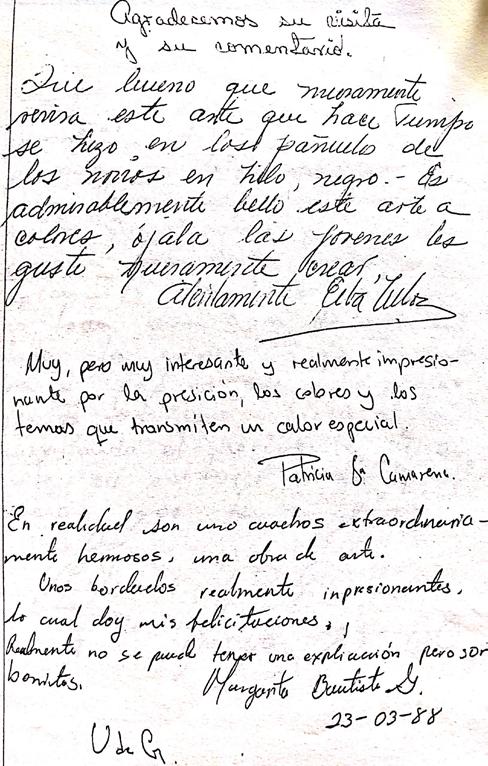 Agradecemos su visita
y su comentario.
Que bueno que nuevamente
revisa este arte que hace Tiempo
se hizo, en los pañuelo de
los novios en hilo, negro. - Es
admirablemente bello este arte a
colores, ójala las jovenes les
guste nuevamente crear,
Atentamente Elba
Muy, pero muy interesante y realmente impresio-
nante por la presición, los colores y los
temas que transmiten un calor especial.
Patricia Ga Camarena.
En realidad son uno cuachos extraordinaria-
mente hermosos, una obra de arte.
Unos bordados realmente inpresionantes,
lo cual doy mis felicitaciones,
Realmente no se puede tener una explicación pero son
bonitos.
Margarita Bautista G.
23-03-88
U de G.